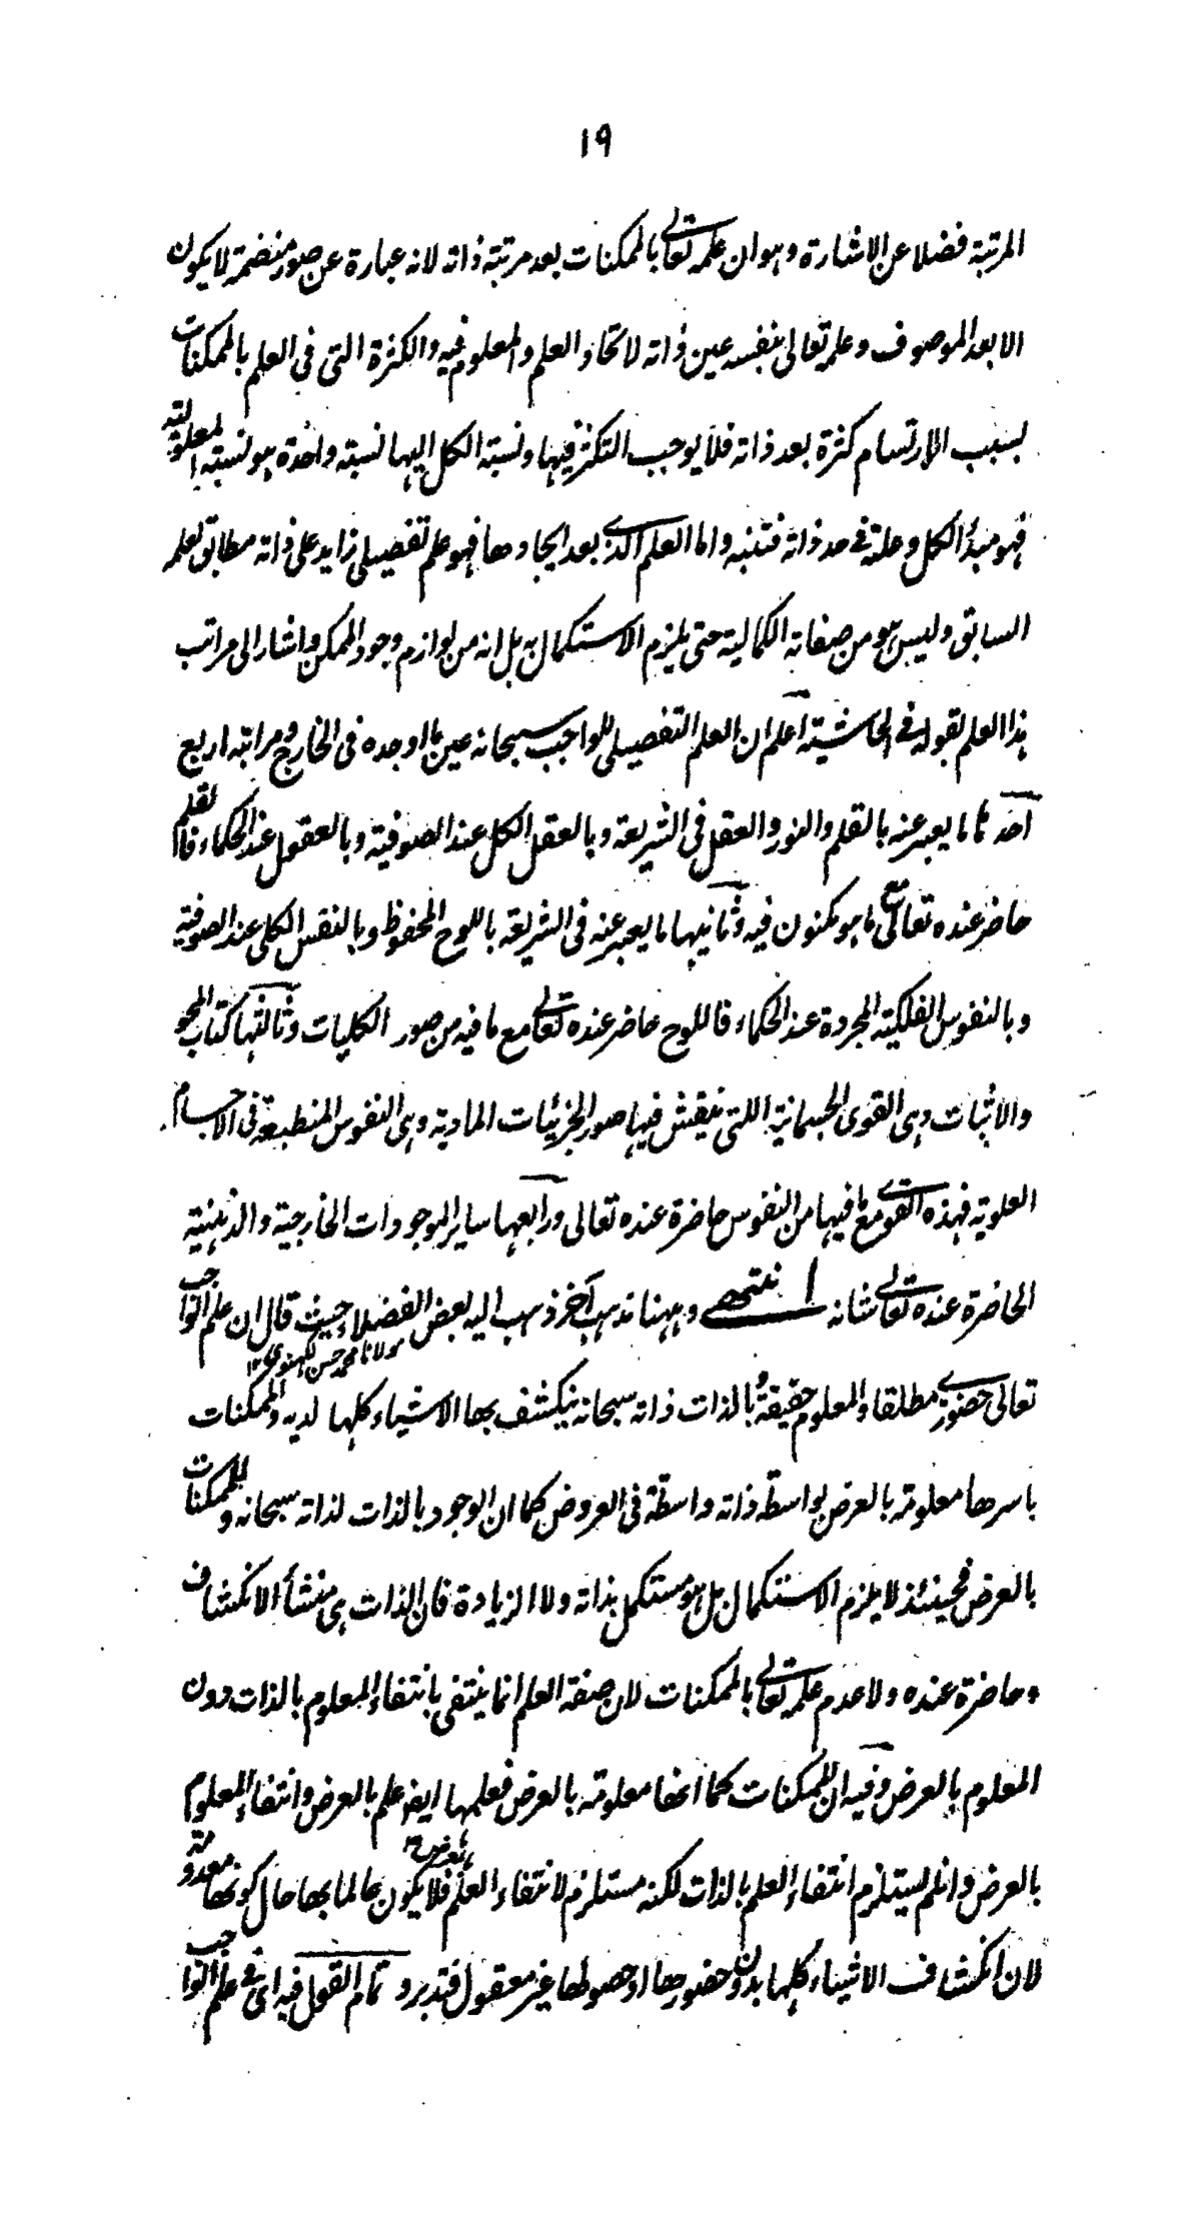 ١٩
المرتبة فضلا عن الاشارة وهو ان علمه تعالى بالممكنات بعد مرتبة ذاته لانه عبارة عن صور منضمة لا يكون
الا بعد الموصوف وعلمه تعالى بنفسه عين ذاته لاتحاد العلم والمعلوم فيه والكثرة التى فى العلم بالممكنات
بسبب الارتسام كثرة بعد ذاته فلا يوجب التكثر فيها ونسبة الكل اليها نسبة واحدة هو نسبة المعلولية
فهو مبدأ الكل وعلة فى حد ذاته فتنبه واما العلم الذى بعد ايجادها فهو علم تفصيلى زايد على ذاته مطابق لعلمه
السابق وليس هو من صفاته الكمالية حتى يلزم الاستكمال به بل انه من لوازم وجود الممكن واشار الى مراتب
هذا العلم بقوله فى الحاشية اعلم ان العلم التفصيلى للواجب سبحانه عين ما اوجده فى الخارج ومراتبه اربع
احدها ما يعبر عنه بالقلم والنور والعقل فى الشريعة وبالعقل الكل عند الصوفية وبالعقول عند الحكماء فالقلم
حاضر عنده تعالى مع ما هو مكنون فيه وثانيها ما يعبر عنه فى الشريعة باللوح المحفوظ وبالنفس الكلى عند الصوفية
وبالنفوس الفلكية المجردة عند الحكماء فاللوح حاضر عنده تعالى مع ما فيه من صور الكليات وثالثها كتاب المحو
والاثبات وهى القوى الجسمانية اللتى ينتقش فيها صور الجزئيات المادية وهى النفوس المنطبعة فى الاجسام
العلوية فهذه القوى مع ما فيها من النفوس حاضرة عنده تعالى ورابعها ساير الموجودات الخارجية والذهنية
الحاضرة عنده تعالى شانه انتهى وههنا مذهب آخر ذهب اليه بعض الفضلاء حيث قال ان علم الواجب
مولانا محمد حسن لكهنوى ١٢
تعالى حضورى مطلقا والمعلوم حقيقة وبالذات ذاته سبحانه ينكشف بها الاشياء كلها لديه والممكنات
باسرها معلومة بالعرض بواسطة ذاته واسطة فى العروض كما ان الوجود بالذات لذاته سبحانه وللممكنات
بالعرض فحينئذ لا يلزم الاستكمال بل هو مستكمل بذاته ولا الزيادة فان الذات هى منشأ الانكشاف
وحاضرة عنده ولا عدم علمه تعالى بالممكنات لان صفة العلم انما ينتفى بانتفاء المعلوم بالذات دون
المعلوم بالعرض وفيه ان للممكنات كما انها معلومة بالعرض فعلمها ايضا علم بالعرض وانتفاء المعلوم
بالعرض وان لم يستلزم انتفاء العلم بالذات لكنه مستلزم لانتفاء العلم بالعرض فلا يكون عالما بها حال كونها معدومة
لان انكشاف الاشياء كلها بدون حضورها او حصولها غير معقول فتدبر وتمام القول فيه اى فى علم الواجب